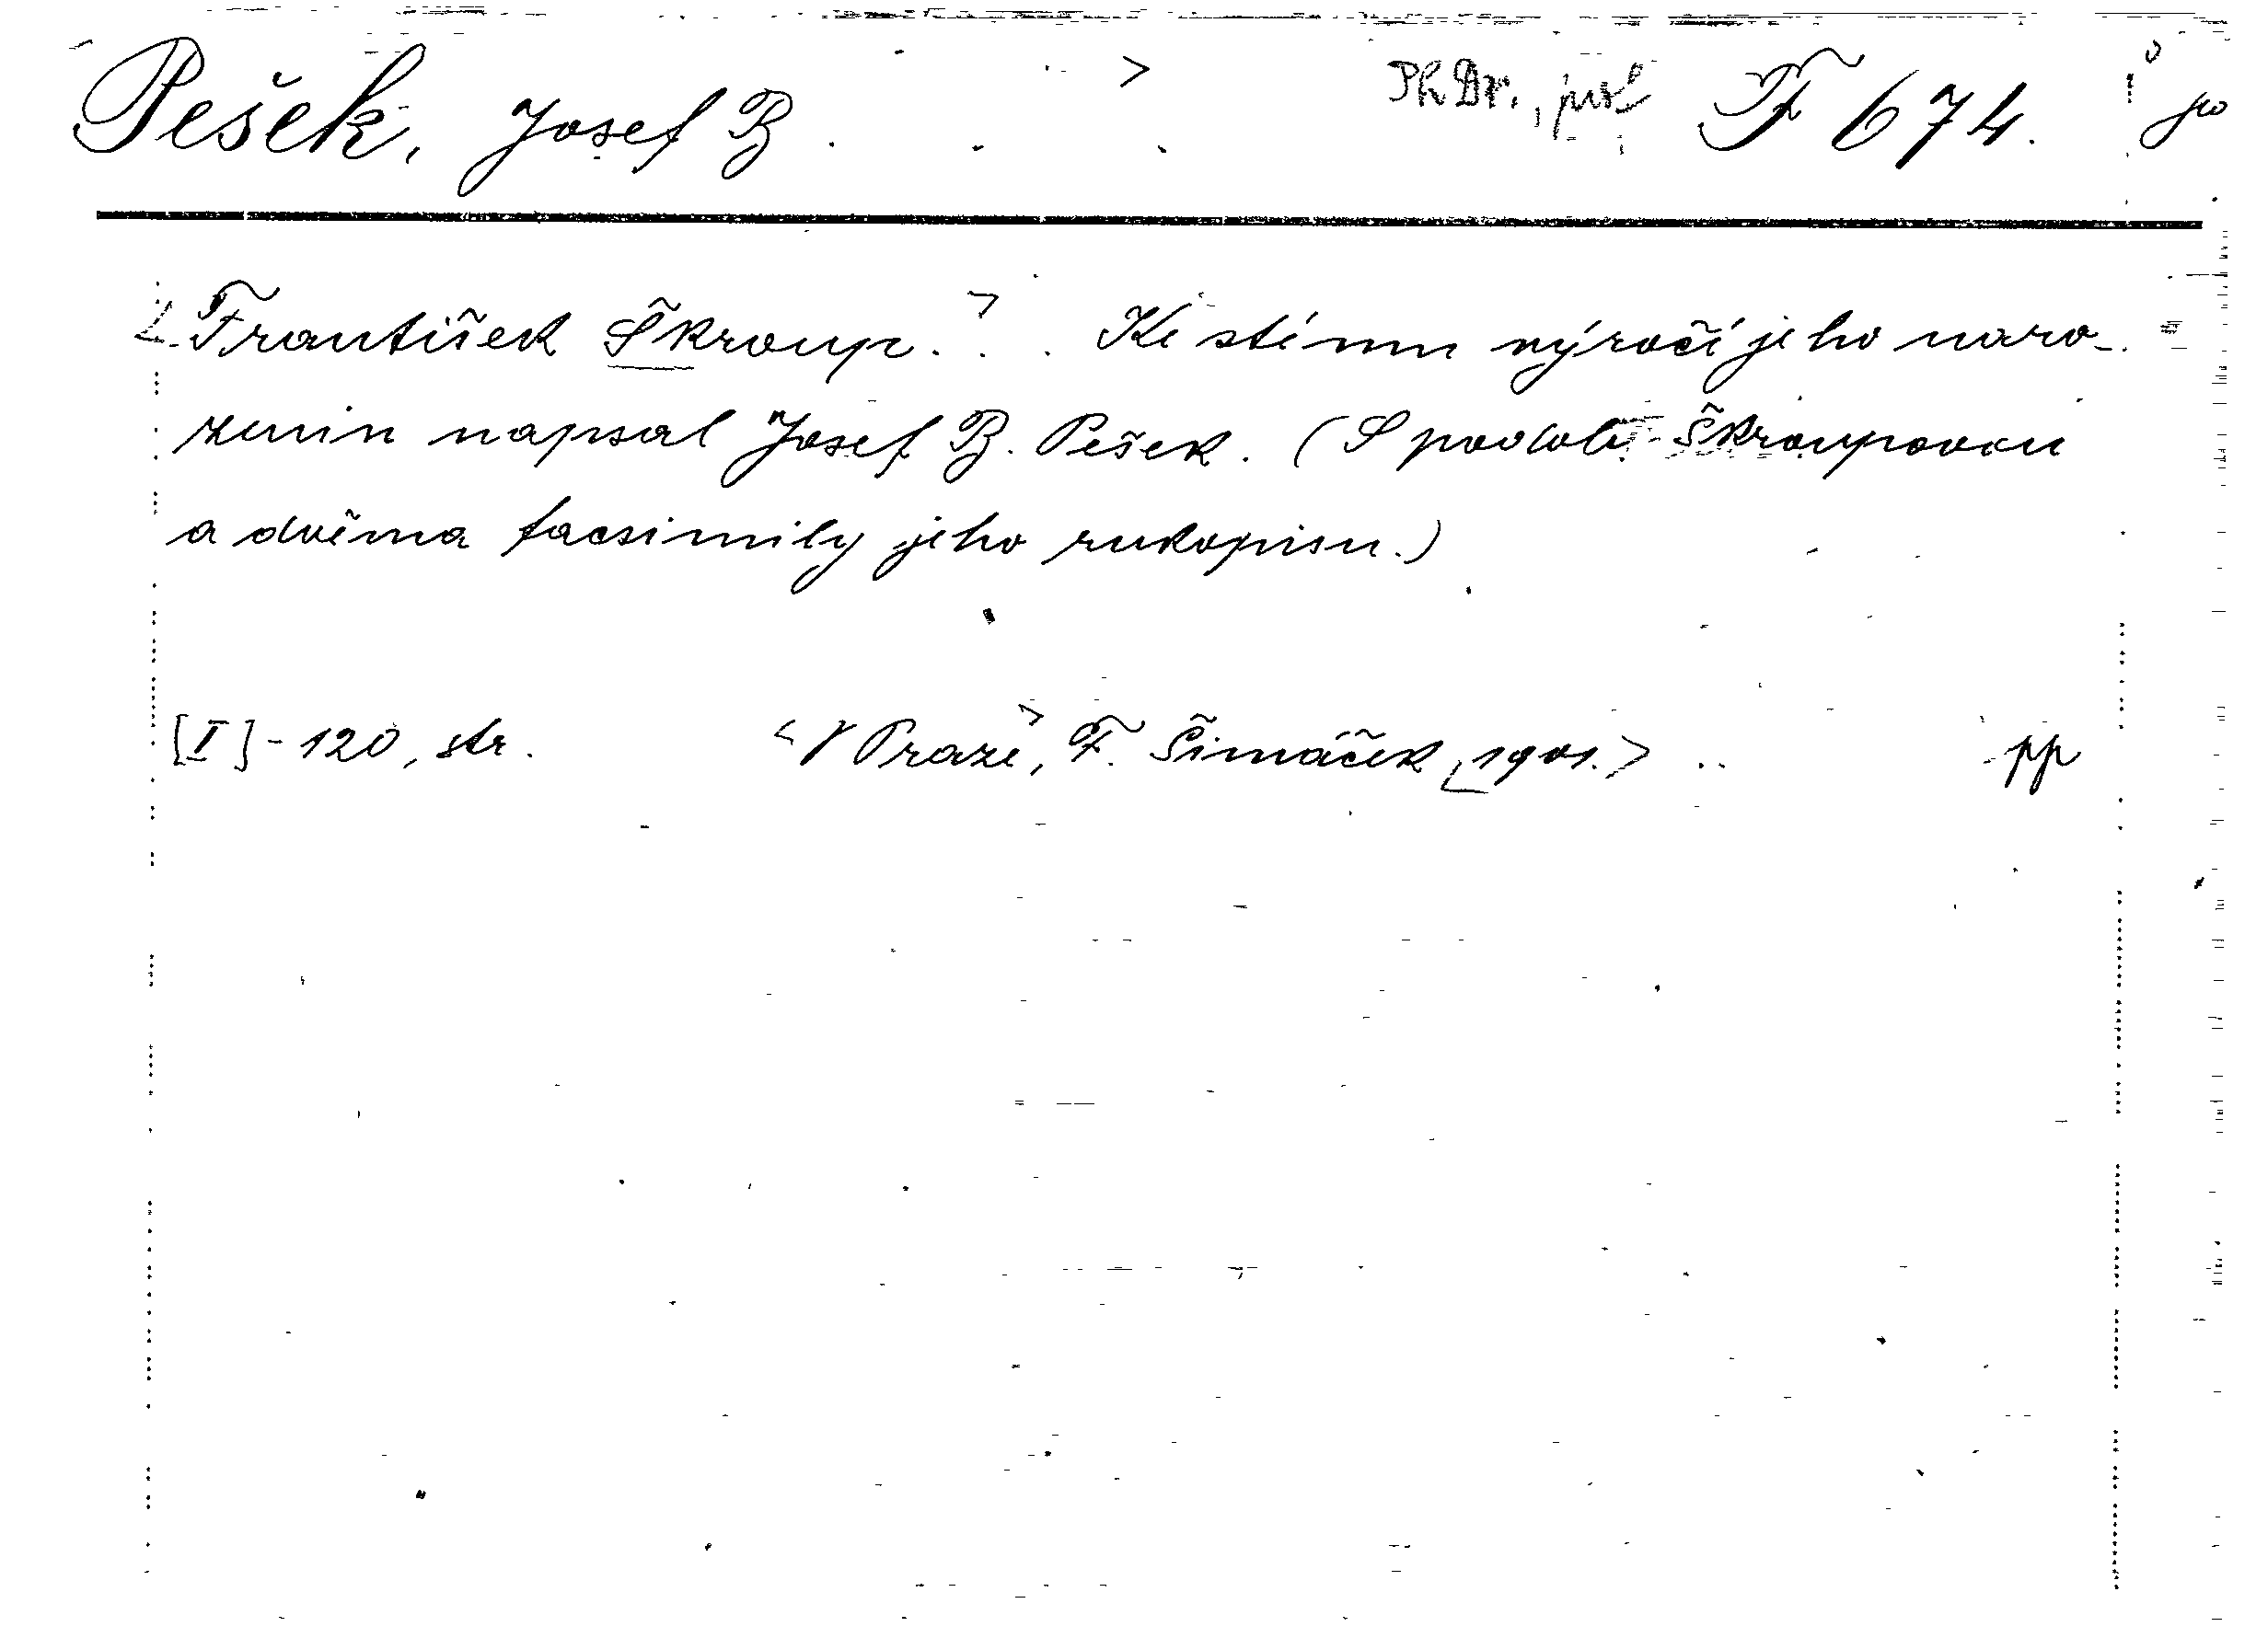 Pešek, Josef B. > PhDr., prof. F 674.
<František Škroup.> Ke stému výročí jeho naro-
zenin napsal Josef B. Pešek. (S podob. Škroupovou
a dvěma facsimily jeho rukopisu.)
[I]-120, str. <V Praze, F. Šimáček, 1901.> pp